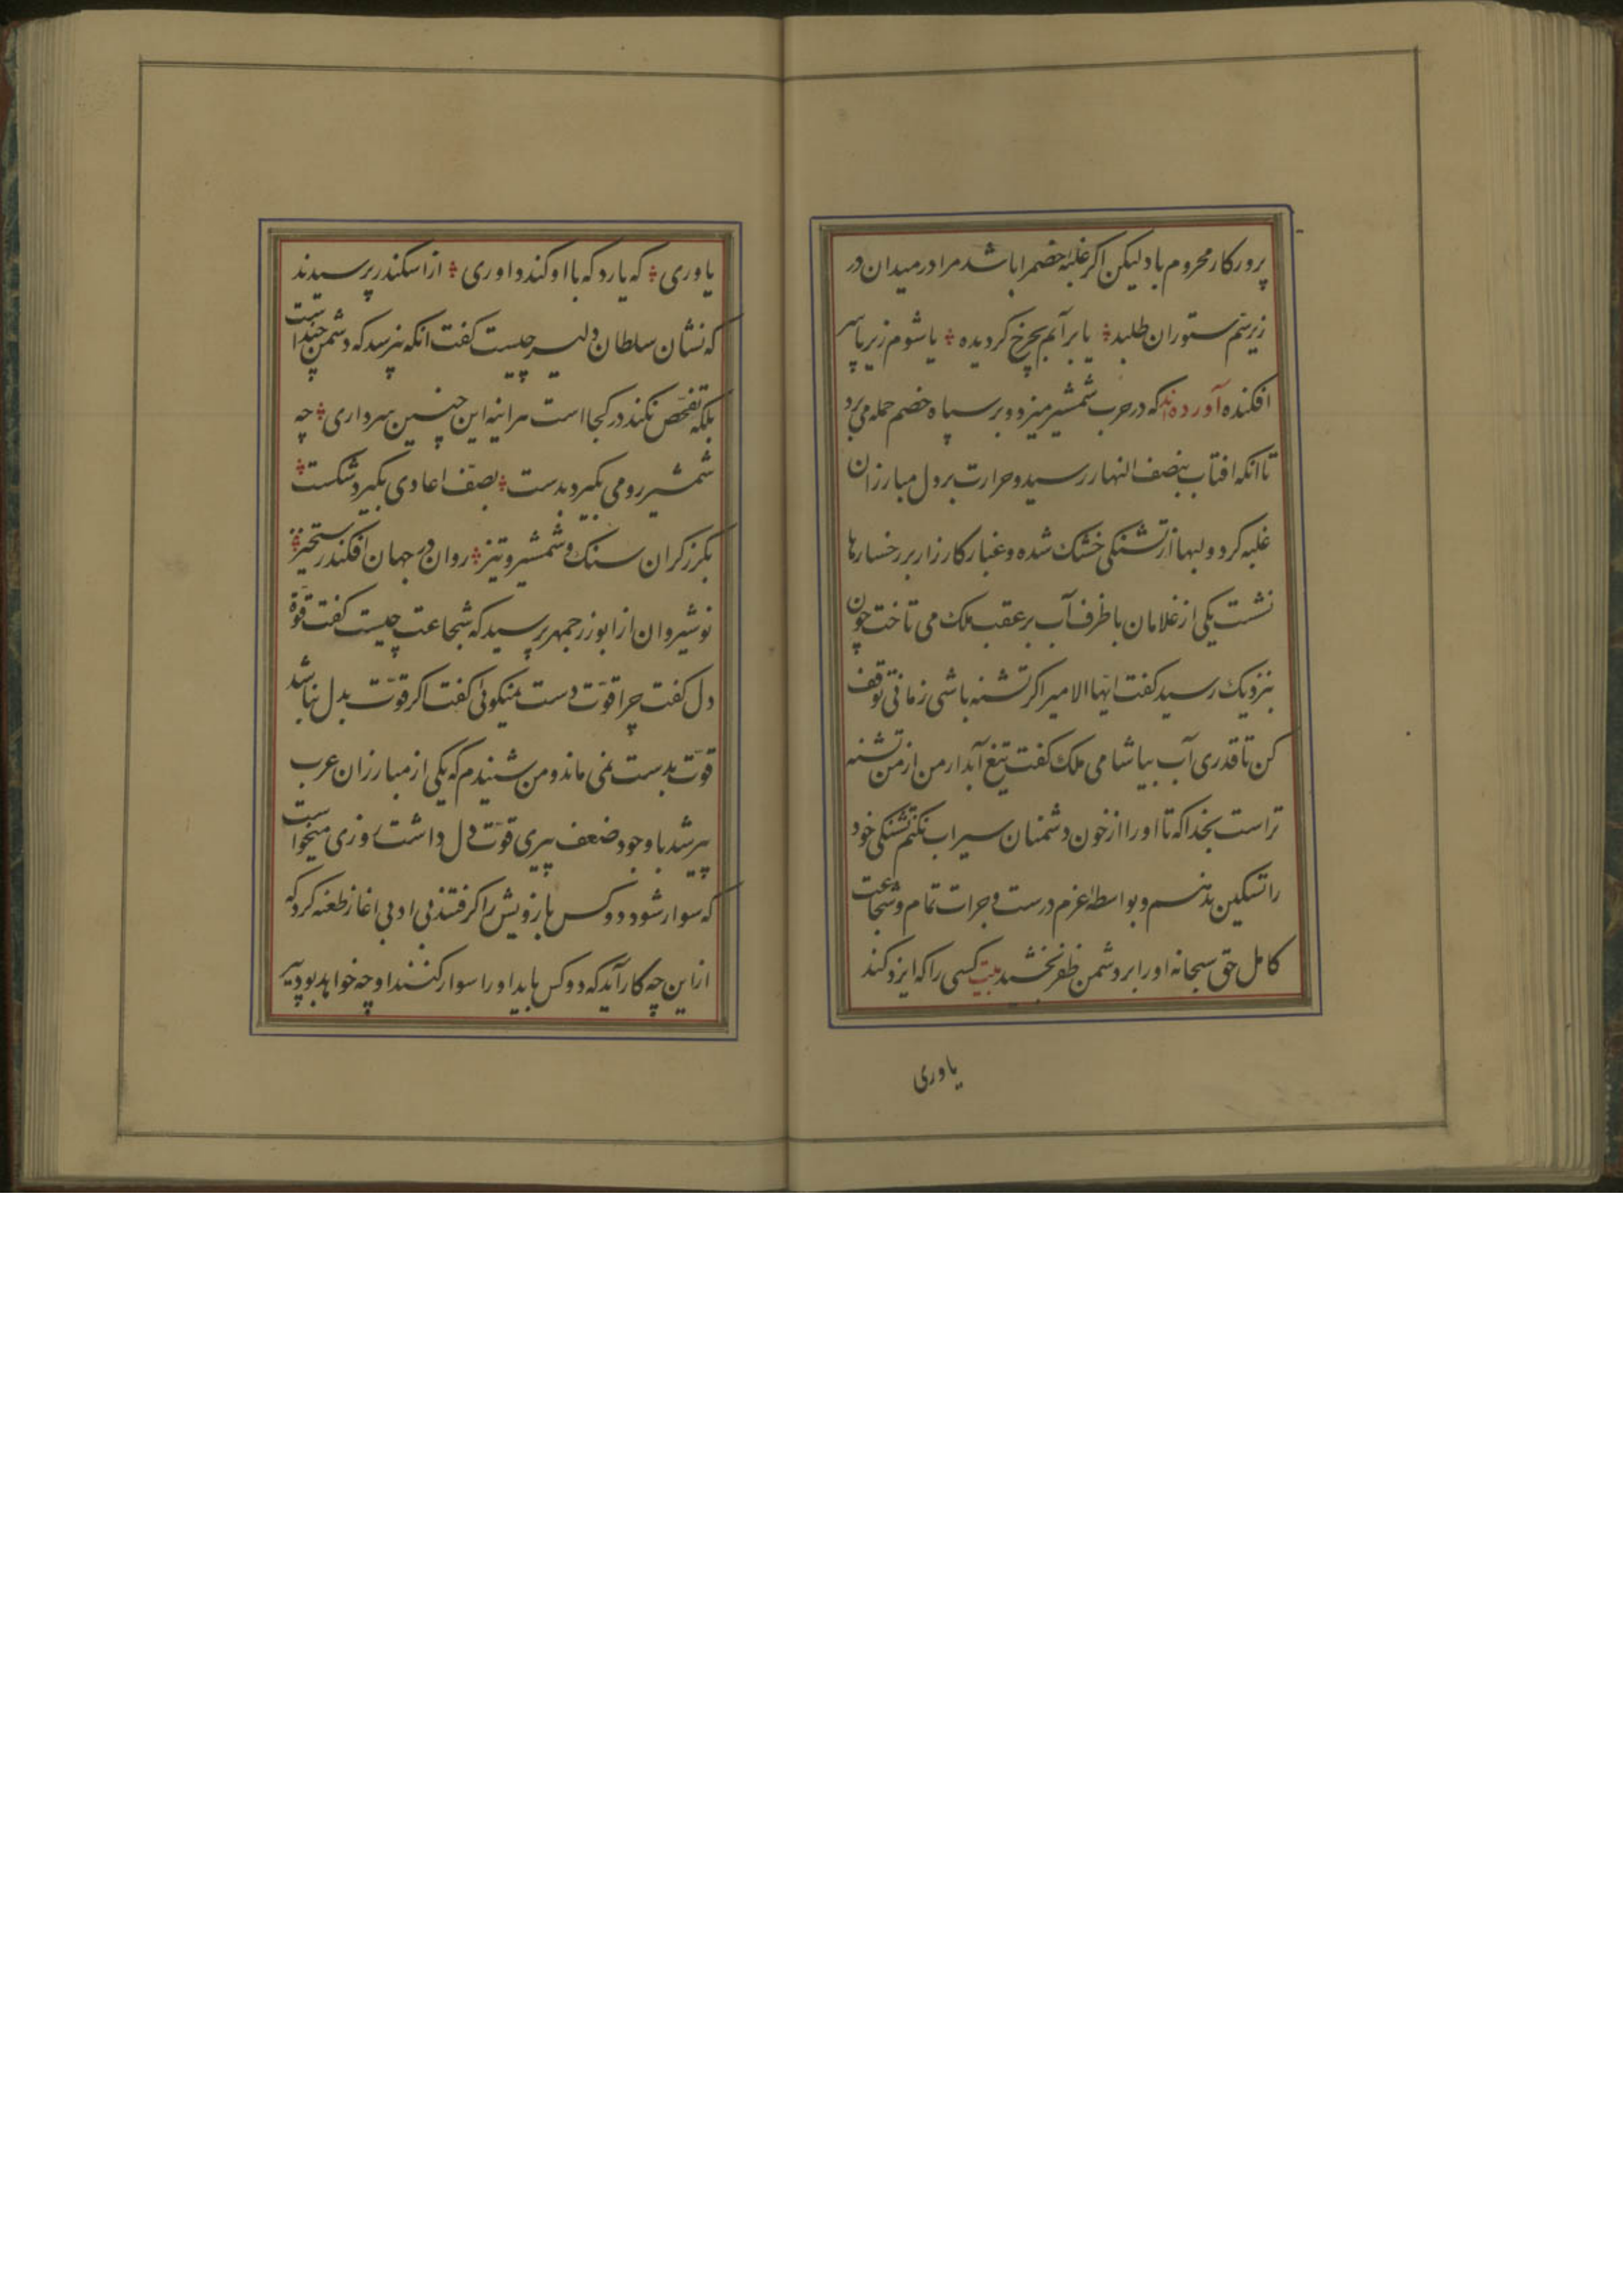 پرورکار محروم باد لیکن اکر غلبه خصم را باشد مرا در میدان در
زیر سم ستوران طلبد یا برآیم بچرخ کردیده یا شوم زیر پا سر
افکنده آورده‌اند که در حرب شمشیر میزد و بر سپاه خصم حمله می برد
تا انکه افتاب بنصف النهار رسید و حرارت بر دل مبارزان
غلبه کرد و لبها از تشنکی خشک شده و غبار کارزار بر رخسارها
نشست یکی از غلامان با ظرف آب بر عقب ملک می تاخت چون
بنزدیک رسید کفت ایّها الامیر اکر تشنه باشی زمانی توقف
کن تا قدری آب بیاشامی ملک کفت تیغ آبدار من از من تشنه
تراست بخدا که تا او را از خون دشمنان سیراب نکنم تشنکی خود
را تسکین ندهم و بواسطهٔ عزم درست و جرات تمام و شجاعت
کامل حق سبحانه او را بر دشمن ظفر بخشید بیت کسی را که ایزد کند
یاوری
یاوری که یارد که با او کند داوری از اسکندر پرسیدند
که نشان سلطان دلیر چیست کفت انکه نپرسد که دشمن چند است
بلکه تفحّص نکند در کجا است هراینه این چنین سرداری چه
شمشیر رومی بکیرد بدست بصف اعادی بکیرد شکست
بکرز کران سنک و شمشیر و تیز روان در جهان افکند رستخیز
نوشیروان از ابوزرجمهر پرسید که شجاعت چیست کفت قوّة
دل کفت چرا قوّت دست نمیکوئی کفت اکر قوّت بدل نباشد
قوّت بدست نمی ماند و من شنیدم که یکی از مبارزان عرب
پیر شد با وجود ضعف پیری قوّت دل داشت روزی میخواست
که سوار شود دو کس بازویش را کرفتند بی ادبی اغاز طعنه کرد که
از این چه کار آید که دو کس باید او را سوار کنند او چه خواهد بود پیر